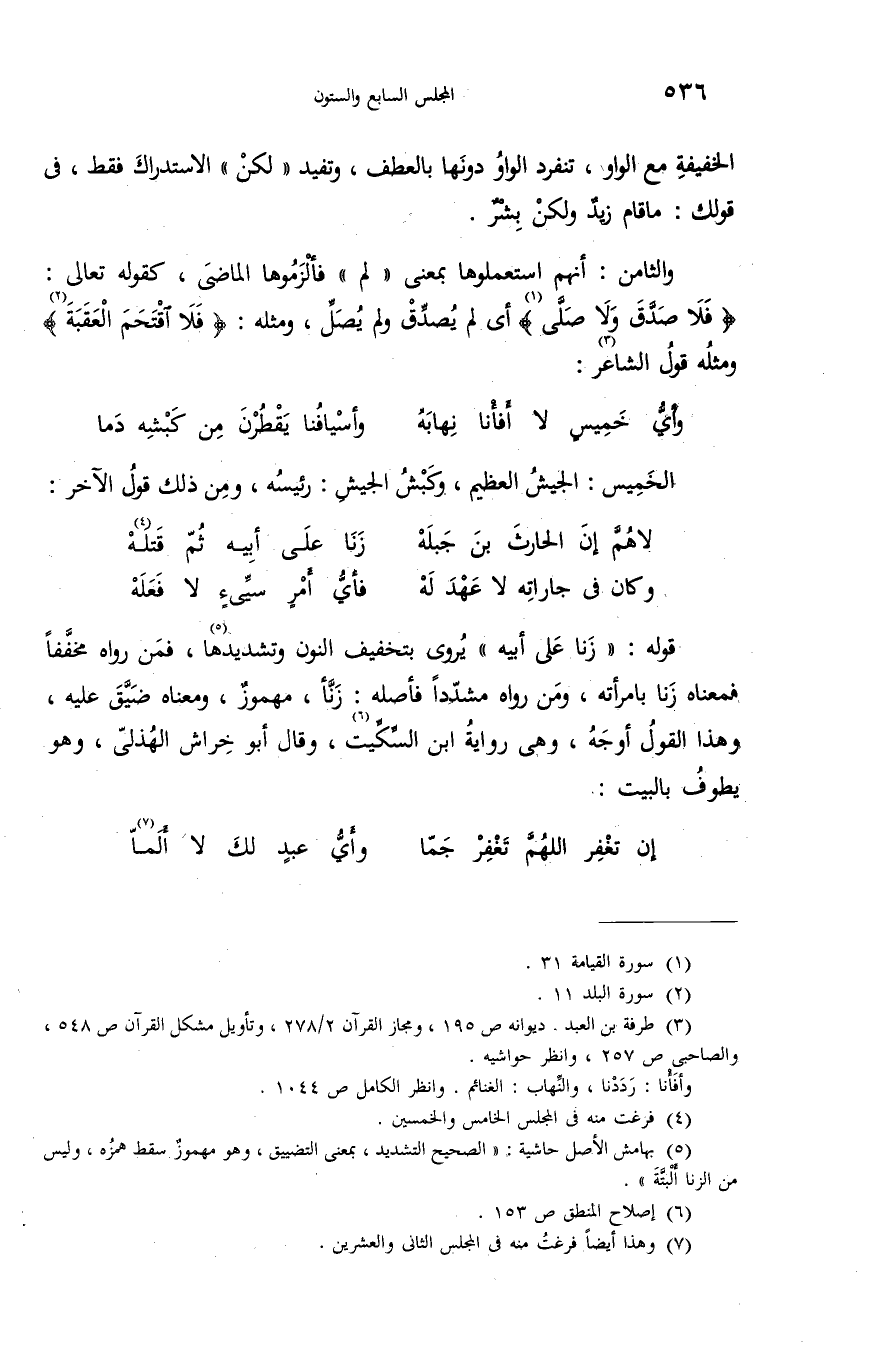 ٥٣٦ المجلس السابع والستون
الخفيفةِ مع الواو ، تنفرد الواوُ دونَها بالعطف ، وتفيد « لكنْ » الاستدراكَ فقط ، فى
قولك : ماقام زيدٌ ولكنْ بِشْرٌ .
والثامن : أنهم استعملوها بمعنى « لم » فألْزَمُوها الماضىَ ، كقوله تعالى :
﴿ فَلَا صَدَّقَ وَلَا صَلَّى (١) ﴾ أى لم يُصدِّقْ ولم يُصَلِّ ، ومثله : ﴿ فَلَا ٱقْتَحَمَ الْعَقَبَةَ (٢) ﴾
ومثلُه قولُ الشاعر (٣) :
وأىُّ خَمِيسٍ لا أَفأْنا نِهابَهُ وأسْيافُنا يَقْطُرْنَ مِن كَبْشِه دَما
الخَمِيس : الجيشُ العظيم ، وكَبْشُ الجيشِ : رئيسُه ، ومِن ذلك قولُ الآخر :
لاهُمَّ إنَ الحارثَ بنَ جَبلَهْ زَنَا علَى أبِيه ثُمّ قَتلهْ (٤)
وكان فى جاراتِه لا عَهْدَ لَهْ فأىُّ أَمْرٍ سيِّىءٍ لا فَعَلَهْ
قوله : « زَنا عَلى أبيه » يُروى بتخفيف النون وتشديدها (٥) ، فمَن رواه مخفَّفاً
فمعناه زَنا بامرأته ، ومَن رواه مشدّداً فأصله : زَنَّأ ، مهموزٌ ، ومعناه ضَيَّقَ عليه ،
وهذا القولُ أوجَهُ ، وهى روايةُ ابن السِّكِّيت (٦) ، وقال أبو خِراش الهُذلىّ ، وهو
يطوفُ بالبيت :
إن تغْفِر اللهُمَّ تَغْفِرْ جَمّا وأَىُّ عبدٍ لكَ لا أَلَمّا (٧)
(١) سورة القيامة ٣١ .
(٢) سورة البلد ١١ .
(٣) طرفة بن العبد . ديوانه ص ١٩٥ ، ومجاز القرآن ٢٧٨/٢ ، وتأويل مشكل القرآن ص ٥٤٨ ،
والصاحبى ص ٢٥٧ ، وانظر حواشيه .
وأفَأْنا : رَدَدْنا ، والنِّهاب : الغنائم . وانظر الكامل ص ١٠٤٤ .
(٤) فرغت منه فى المجلس الخامس والخمسين .
(٥) بهامش الأصل حاشية : « الصحيح التشديد ، بمعنى التضييق ، وهو مهموزٌ سقط همزُه ، وليس
من الزنا أَلْبتَّةَ » .
(٦) إصلاح المنطق ص ١٥٣ .
(٧) وهذا أيضاً فرغتُ منه فى المجلس الثانى والعشرين .